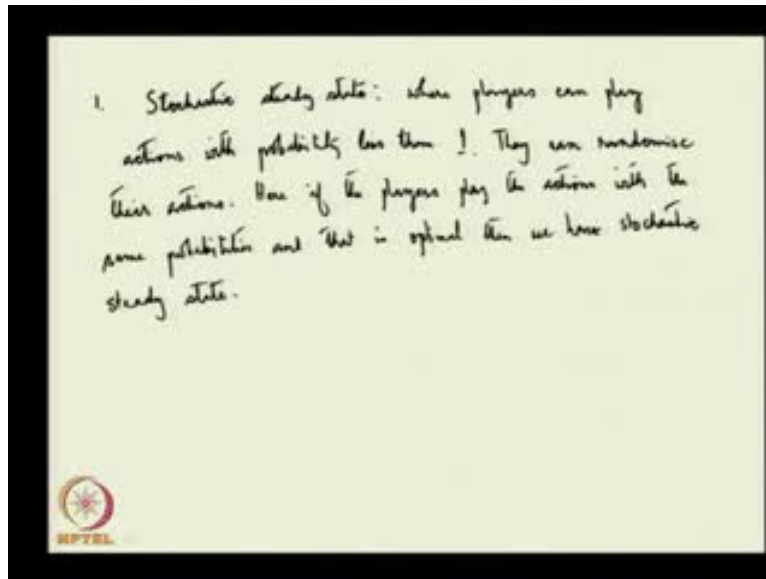 1. Stochastic steady state: where players can play
actions with probability less than 1. They can randomise
their actions. Here if the players play the actions with the
same probabilities and that is optimal then we have stochastic
steady state.
NPTEL